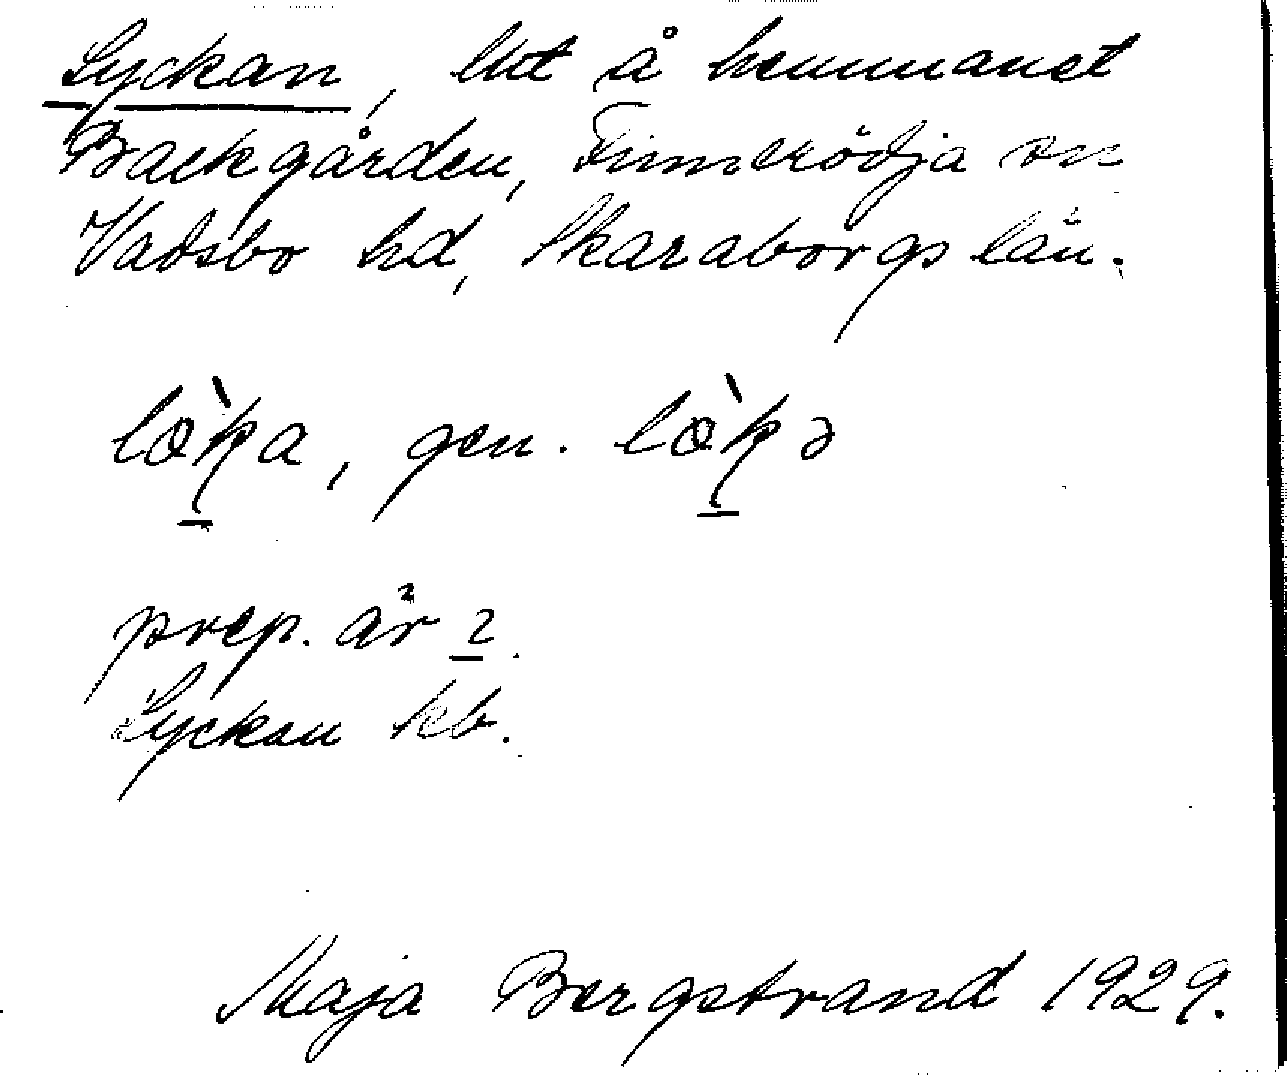 Lyckan, lht å hemmanet
Backgården, Finnerödja sn
Vadsbo hd, Skaraborgs län.
lø̀ka, gen. lø̀kə
prep. är 2.
Lyckan kb.
Maja Bergstrand 1929.